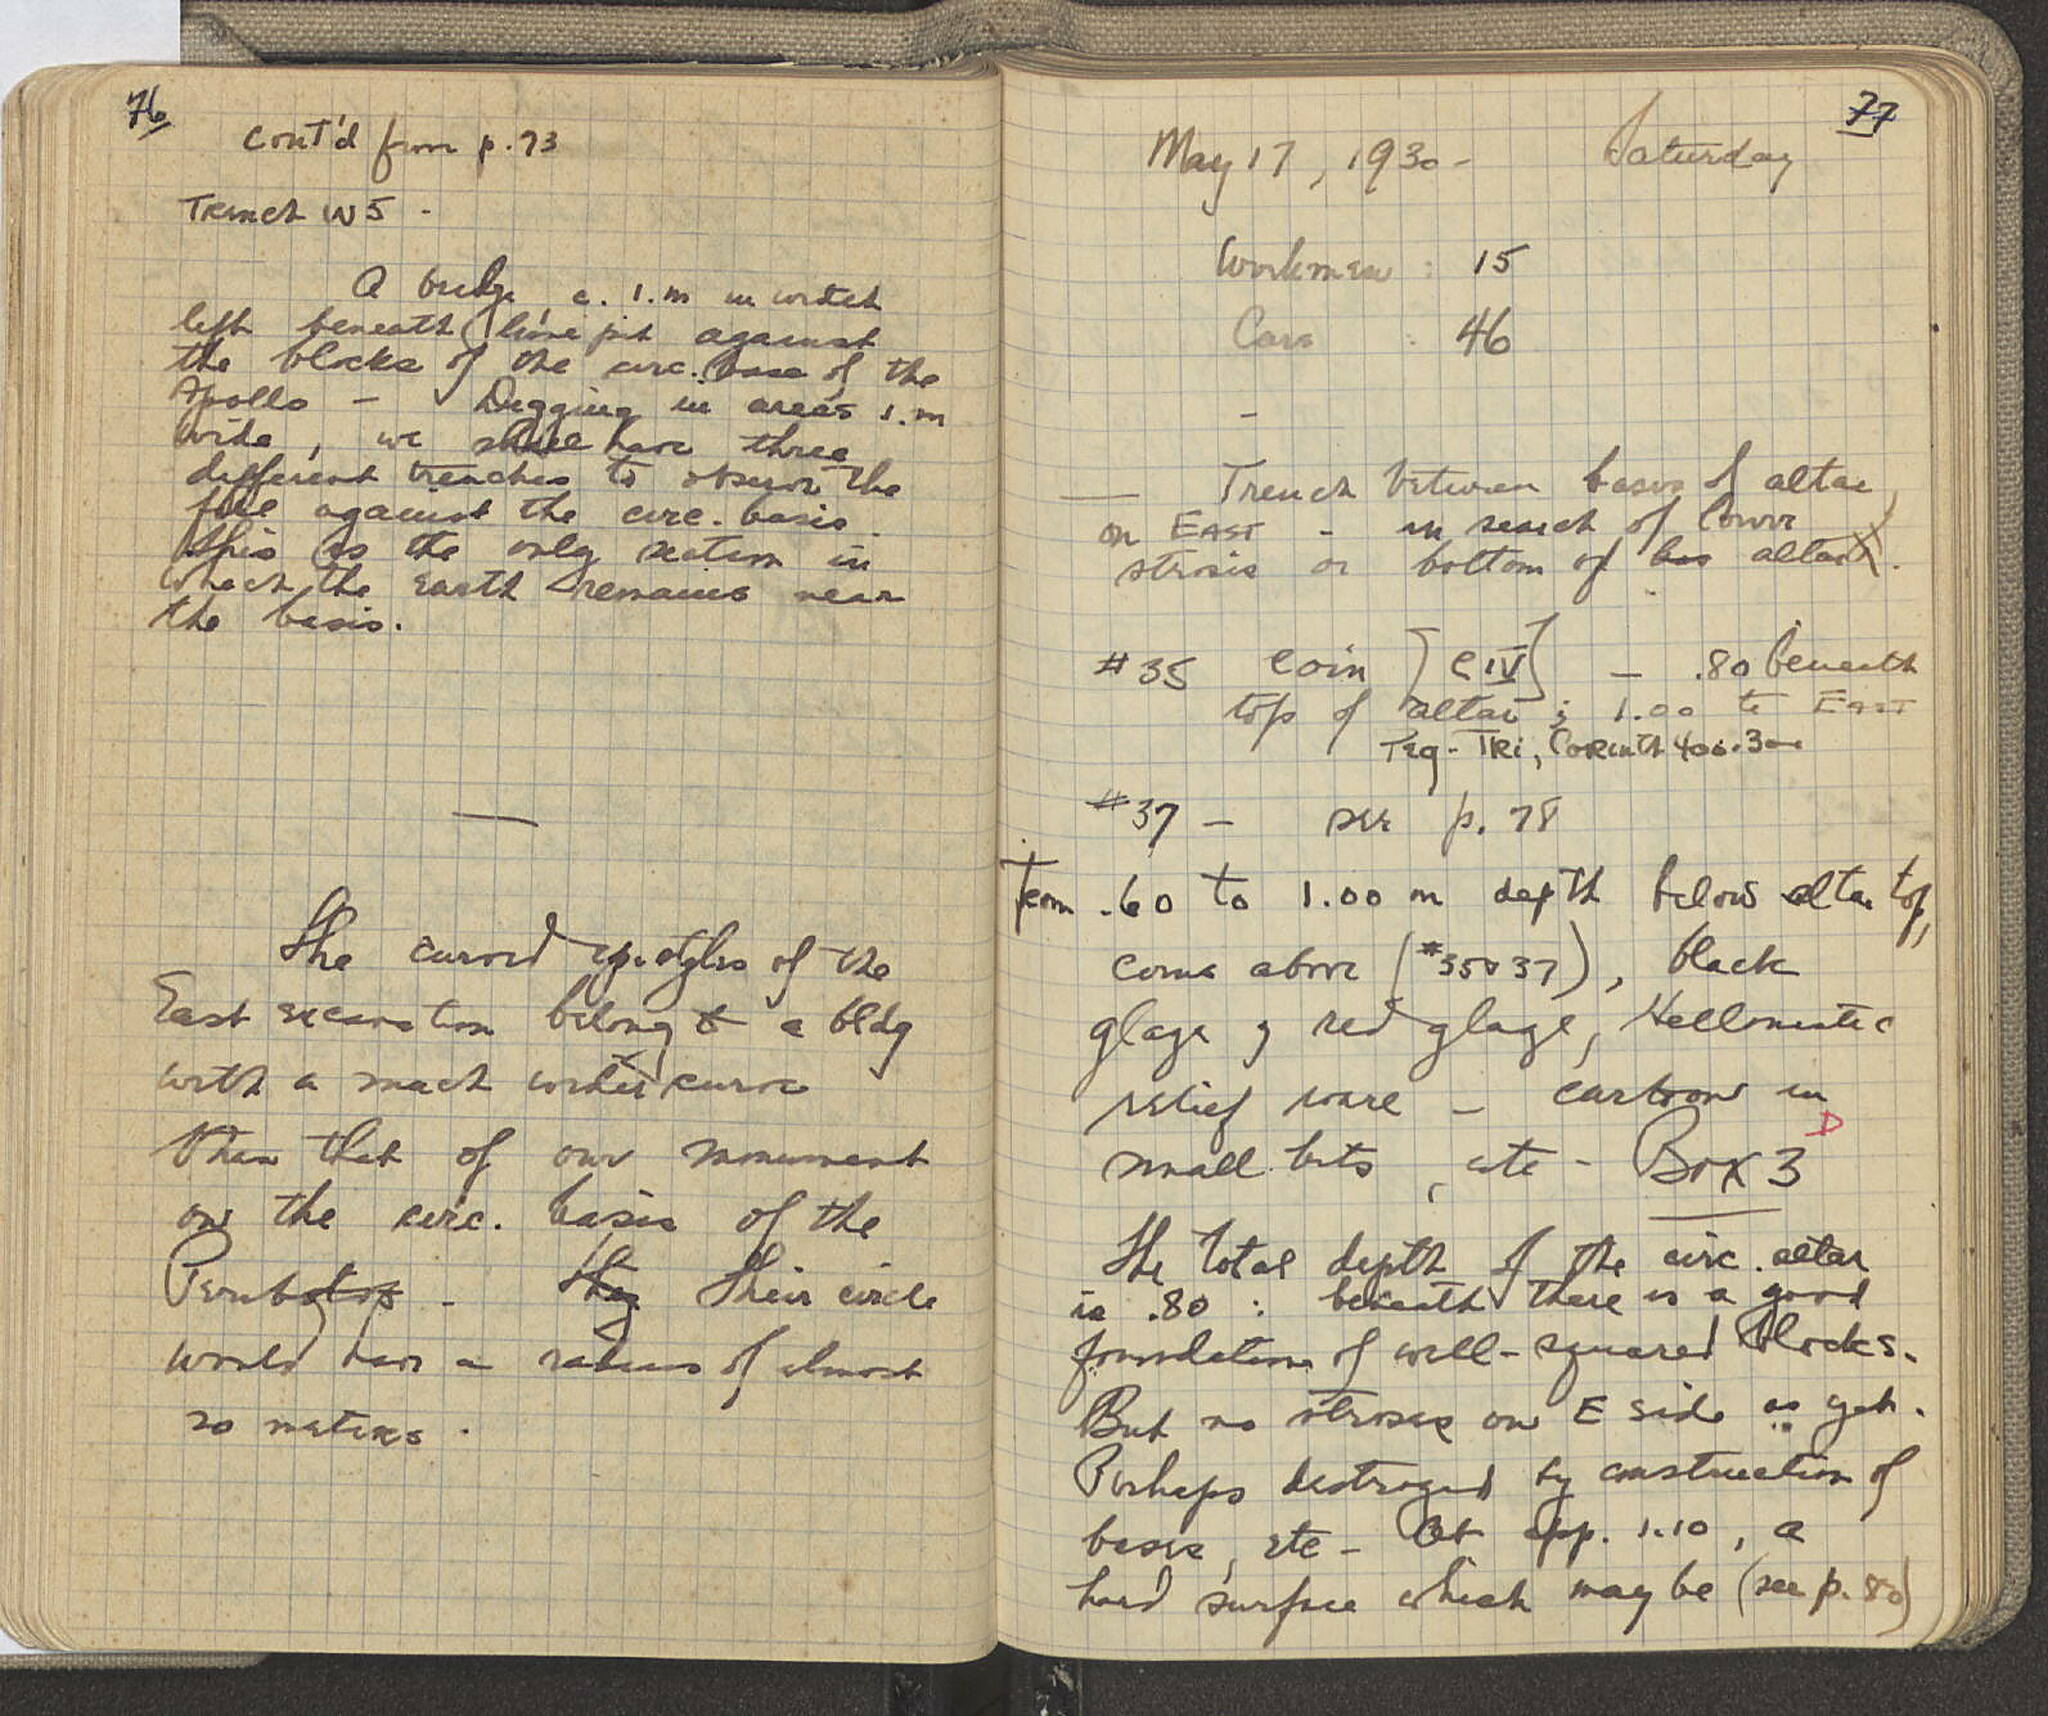 76
Cont'd from p. 73
Trench W5 -
A bridge c. 1.m in width
left beneath lime pit against
the blocks of the circ. base of the
Apollo - Digging in areas 1.m
wide, we shall have three
different trenches to observe the
fill against the circ. basis.
This is the only section in
which the earth remains near
the basis.
The curved of the
East excavation belong to a bldg
with a much wider curve
than that of our monument
on the circ. basis of the
- They Their circle
would have a radius of almost
20 meters.
77
May 17, 1930 - Saturday
Workmen : 15
Cars : 46
Trench between basis of altar
on EAST - in search of lower
strosis or bottom of bas altar.
#35 coin [C IV] - .80 beneath
top of altar; 1.00 to EAST
Teg-Tri, Corinth 400-300
#37 - see p. 78
From .60 to 1.00 m depth below altar top,
coins above (#35 & 37), black
glaze; red glaze, Hellenistic
relief ware - carbon in
small bits, etc - Box 3 D
The total depth of the circ. altar
is .80 : beneath there is a good
foundation of well-squared blocks.
But no strosis on E side as yet.
Perhaps destroyed by construction of
basis, etc - At app. 1.10, a
hard surface which may be (see p. 80)